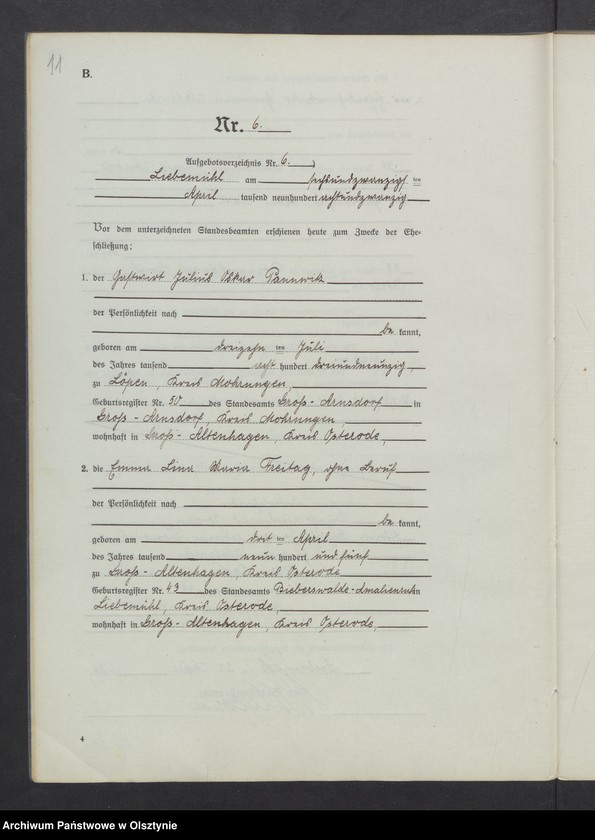 11
B.
Nr. 6.
Aufgebotsverzeichnis Nr. 6.
Liebemühl am sechsundzwanzigs ten
April tausend neunhundert achtundzwanzig
Vor dem unterzeichneten Standesbeamten erschienen heute zum Zwecke der Ehe-
schließung:
1. der Gastwirt Julius Oskar Pannwitz
der Persönlichkeit nach
be kannt,
geboren am dreizehn ten Juli
des Jahres tausend acht hundert dreiundneunzig
zu Löpen, Kreis Mohrungen,
Geburtsregister Nr. 50 des Standesamts Gross-Arnsdorf in
Gross-Arnsdorf, Kreis Mohrungen,
wohnhaft in Gross-Altenhagen, Kreis Osterode,
2. die Emma Lina Maria Freitag, ohne Beruf
der Persönlichkeit nach
be kannt,
geboren am drit ten April
des Jahres tausend neun hundert und fünf
zu Gross-Altenhagen, Kreis Osterode
Geburtsregister Nr. 43 des Standesamts Bieberswalde-Amalienruh in
Liebemühl, Kreis Osterode,
wohnhaft in Gross-Altenhagen, Kreis Osterode,
4
Archiwum Państwowe w Olsztynie